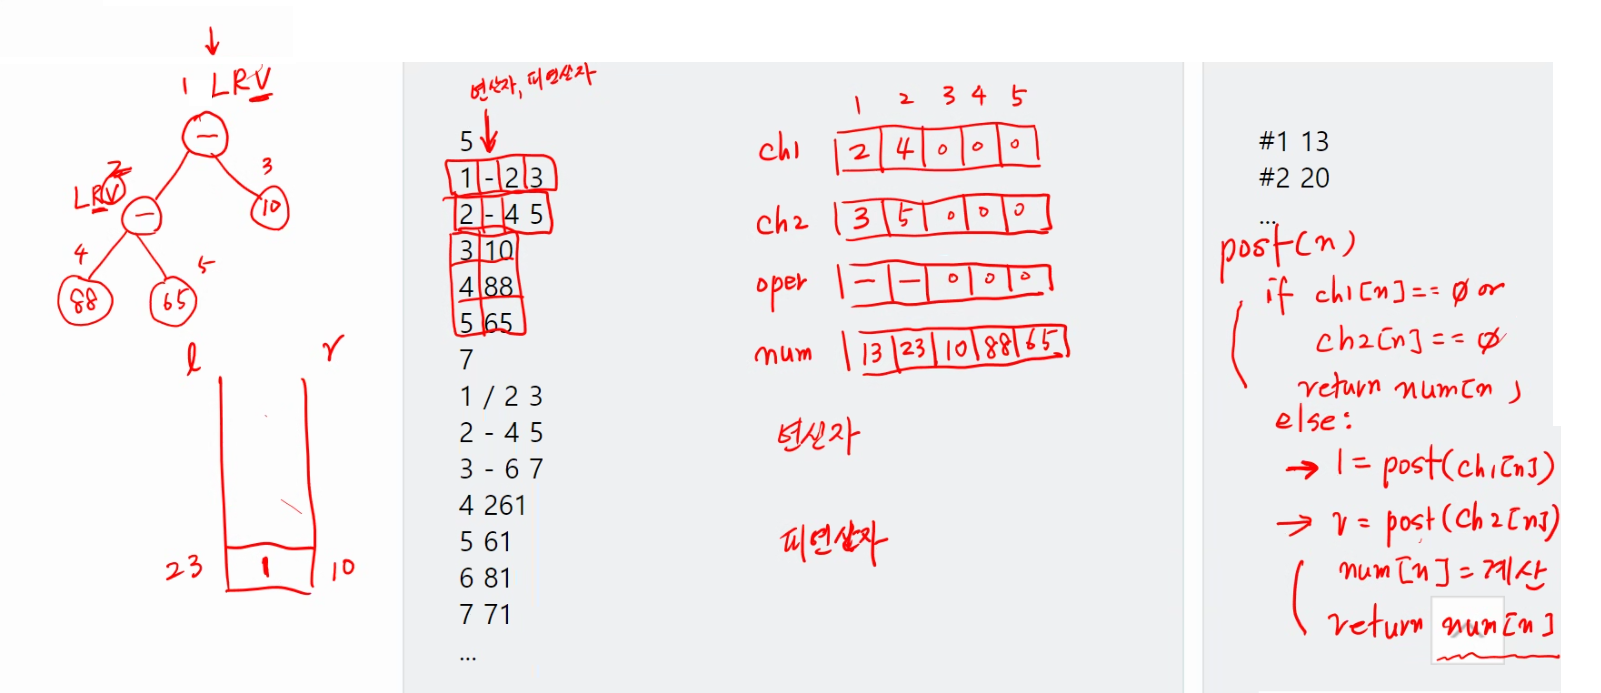 1 LRV
−
2
LRV
−
3
10
4
88
5
65
l
r
23
1
10
연산자, 피연산자
5
1 - 2 3
2 - 4 5
3 10
4 88
5 65
7
1 / 2 3
2 - 4 5
3 - 6 7
4 261
5 61
6 81
7 71
...
1 2 3 4 5
ch1 2 4 0 0 0
ch2 3 5 0 0 0
oper − − 0 0 0
num 13 23 10 88 65
연산자
피연산자
#1 13
#2 20
...
post(n)
if ch1[n]==0 or
ch2[n]==0
return num[n]
else:
→ l = post(ch1[n])
→ r = post(ch2[n])
num[n] = 계산
return num[n]